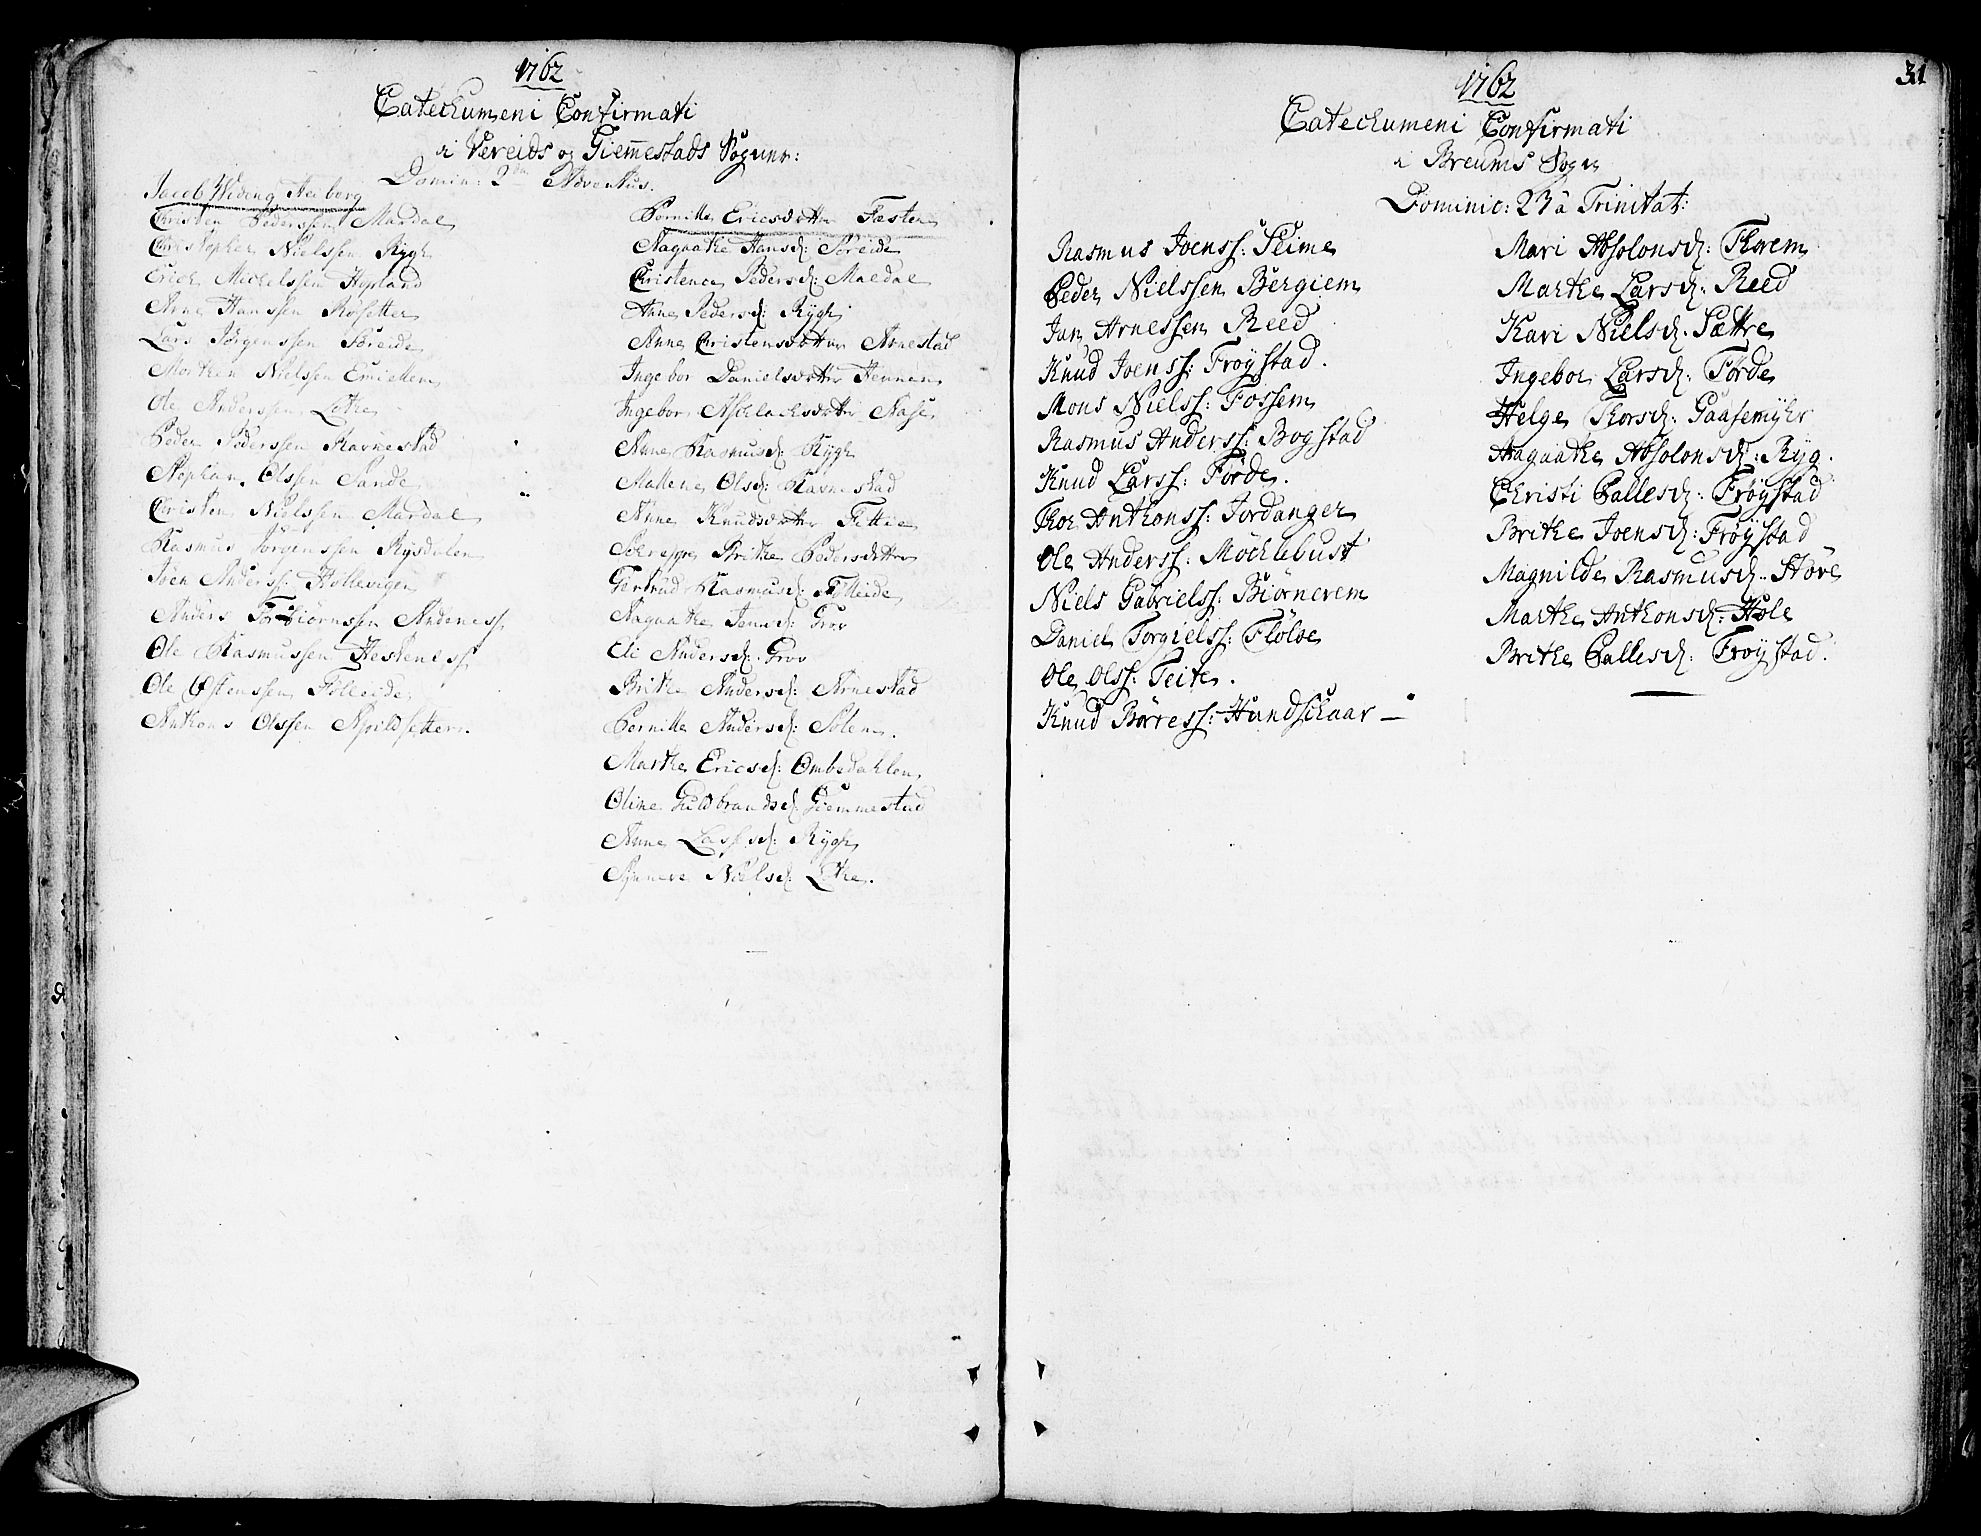 1762
Catechumeni Confirmati
i Vereids og Giemestads Sogner:
Domin: 2da Adventus.
Jacob Wideng Heiberg
Christen Pederssen Mardal
Christopher Nielssen Rygh
Erich Michelssen Hyeland
Arne Hanssen Røsetter
Lars Jørgenssen Søreide
Morthen Nielssen Emichen
Ole Anderssen Lothe
Peder Pederssen Ravnestad
Stephan Olssen Sande
Christen Nielssen Mardal
Rasmus Jørgenssen Rysdalen
Joen Anderss: Hollevigen
Anders Torbiørnssen Andeness
Ole Rasmussen Hesteness
Ole Østenssen Følleide
Anthons Olssen Aprildsetter.
Pernille Ericsdatter Fæsten
Aagaathe Hansd: Søreide
Christence Pedersd: Mardal
Anne Pedersd: Rygh
Anne Christensdatter Arnestad
Ingebor Danielsdatter Hennen
Ingebor Aschlachsdatter Aase
Anne Rasmusd: Rygh
Mallene Olsd: Ravnestad
Anne Knudsdatter Fettie
Brithe Pedersdatter
Giertrud Rasmusd: Følleide
Aagaathe Jensd: Grov
Eli Andersd: Grov
Brithe Andersd: Arnestad
Pernille Andersd: Solem.
Marthe Ericsd: Ombedahlen
Oline Guldbrandsd: Giemmestad
Anne Lassesd: Rygh
Synneve Nielsd: Lothe.
31
1762
Catechumeni Confirmati
i Breums Sogn
Dominic: 23 a Trinitat:
Rasmus Joenss: Seime
Peder Nielssen Bergiem
Jan Arnessen Reed
Knud Joenss: Frøystad.
Mons Nielss: Fossem
Rasmus Anderss: Bogstad
Knud Larss: Førde.
Thor Anthonss: Jordanger
Ole Anderss: Möchlebust
Niels Gabrielss: Biörnerem
Daniel Torgielss: Flølve
Ole Olss: Teite.
Knud Børress: Hundschaar —
Mari Absolonsd: Thorem
Marthe Larsd: Reed
Kari Nielsd: Sættre
Ingebor Larsd: Førde
Helge Thorsd: Gaasemyhr
Aagaathe Absolonsd: Ryg.
Christi Pallesd: Frøystad
Brithe Joensd: Frøystad
Magnilde Rasmusd: Høve
Marthe Anthonsd: Hole
Brithe Pallesd: Frøystad.